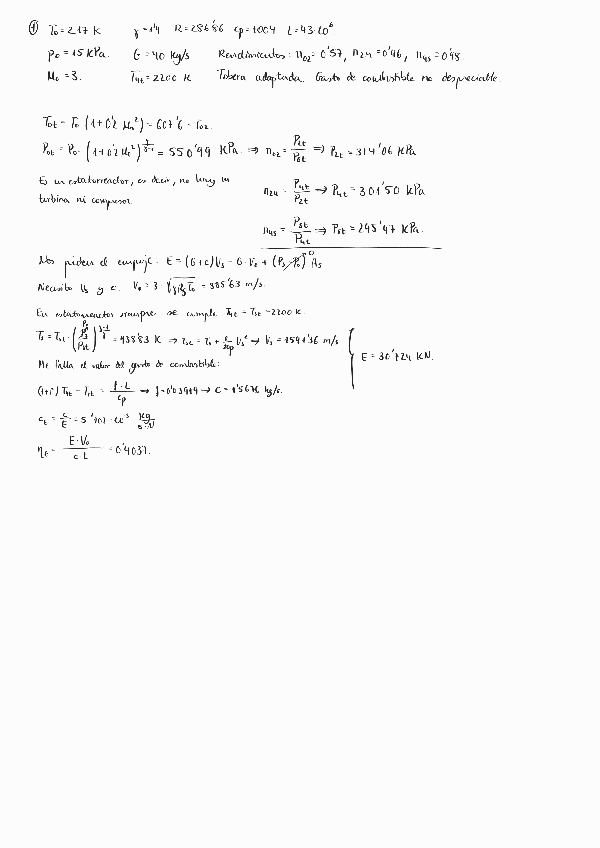 ① T₀ = 217 K γ = 1'4 R = 286'86 cp = 1004 L = 43·10⁶
p₀ = 15 kPa. G = 40 kg/s Rendimientos: η₀₂ = 0'57, η₂₄ = 0'96, η₄₅ = 0'98
M₀ = 3. T₄t = 2200 K Tobera adaptada. Gasto de combustible no despreciable.
T₀t = T₀ (1 + 0'2 M₀²) = 607'6 = T₀₂.
P₀t = P₀ · (1 + 0'2 M₀²)^(γ/(γ-1)) = 550'99 kPa. ⇒ η₀₂ = P₂t/P₀t ⇒ P₂t = 314'06 kPa
Es un estatorreactor, es decir, no hay ni
turbina ni compresor.
η₂₄ = P₄t/P₂t → P₄t = 301'50 kPa
η₄₅ = P₅t/P₄t → P₅t = 295'47 kPa.
Nos piden el empuje: E = (G+c)V₅ - G·V₀ + (P₅-P₀)⁰ A₅
Necesito V₅ y c. V₀ = 3·√(γRT₀) = 885'63 m/s.
En estatorreactores siempre se cumple T₄t = T₅t = 2200 K.
T₅ = T₅t · (P₅/P₅t)^((γ-1)/γ) = 938'83 K ⇒ T₅t = T₅ + 1/2cp V₅² → V₅ = 1591'36 m/s
E = 30'124 kN.
Me falta el valor del gasto de combustible:
(1+f) T₄t - T₂t = f·L/cp → f = 0'03919 → c = 1'5676 kg/s.